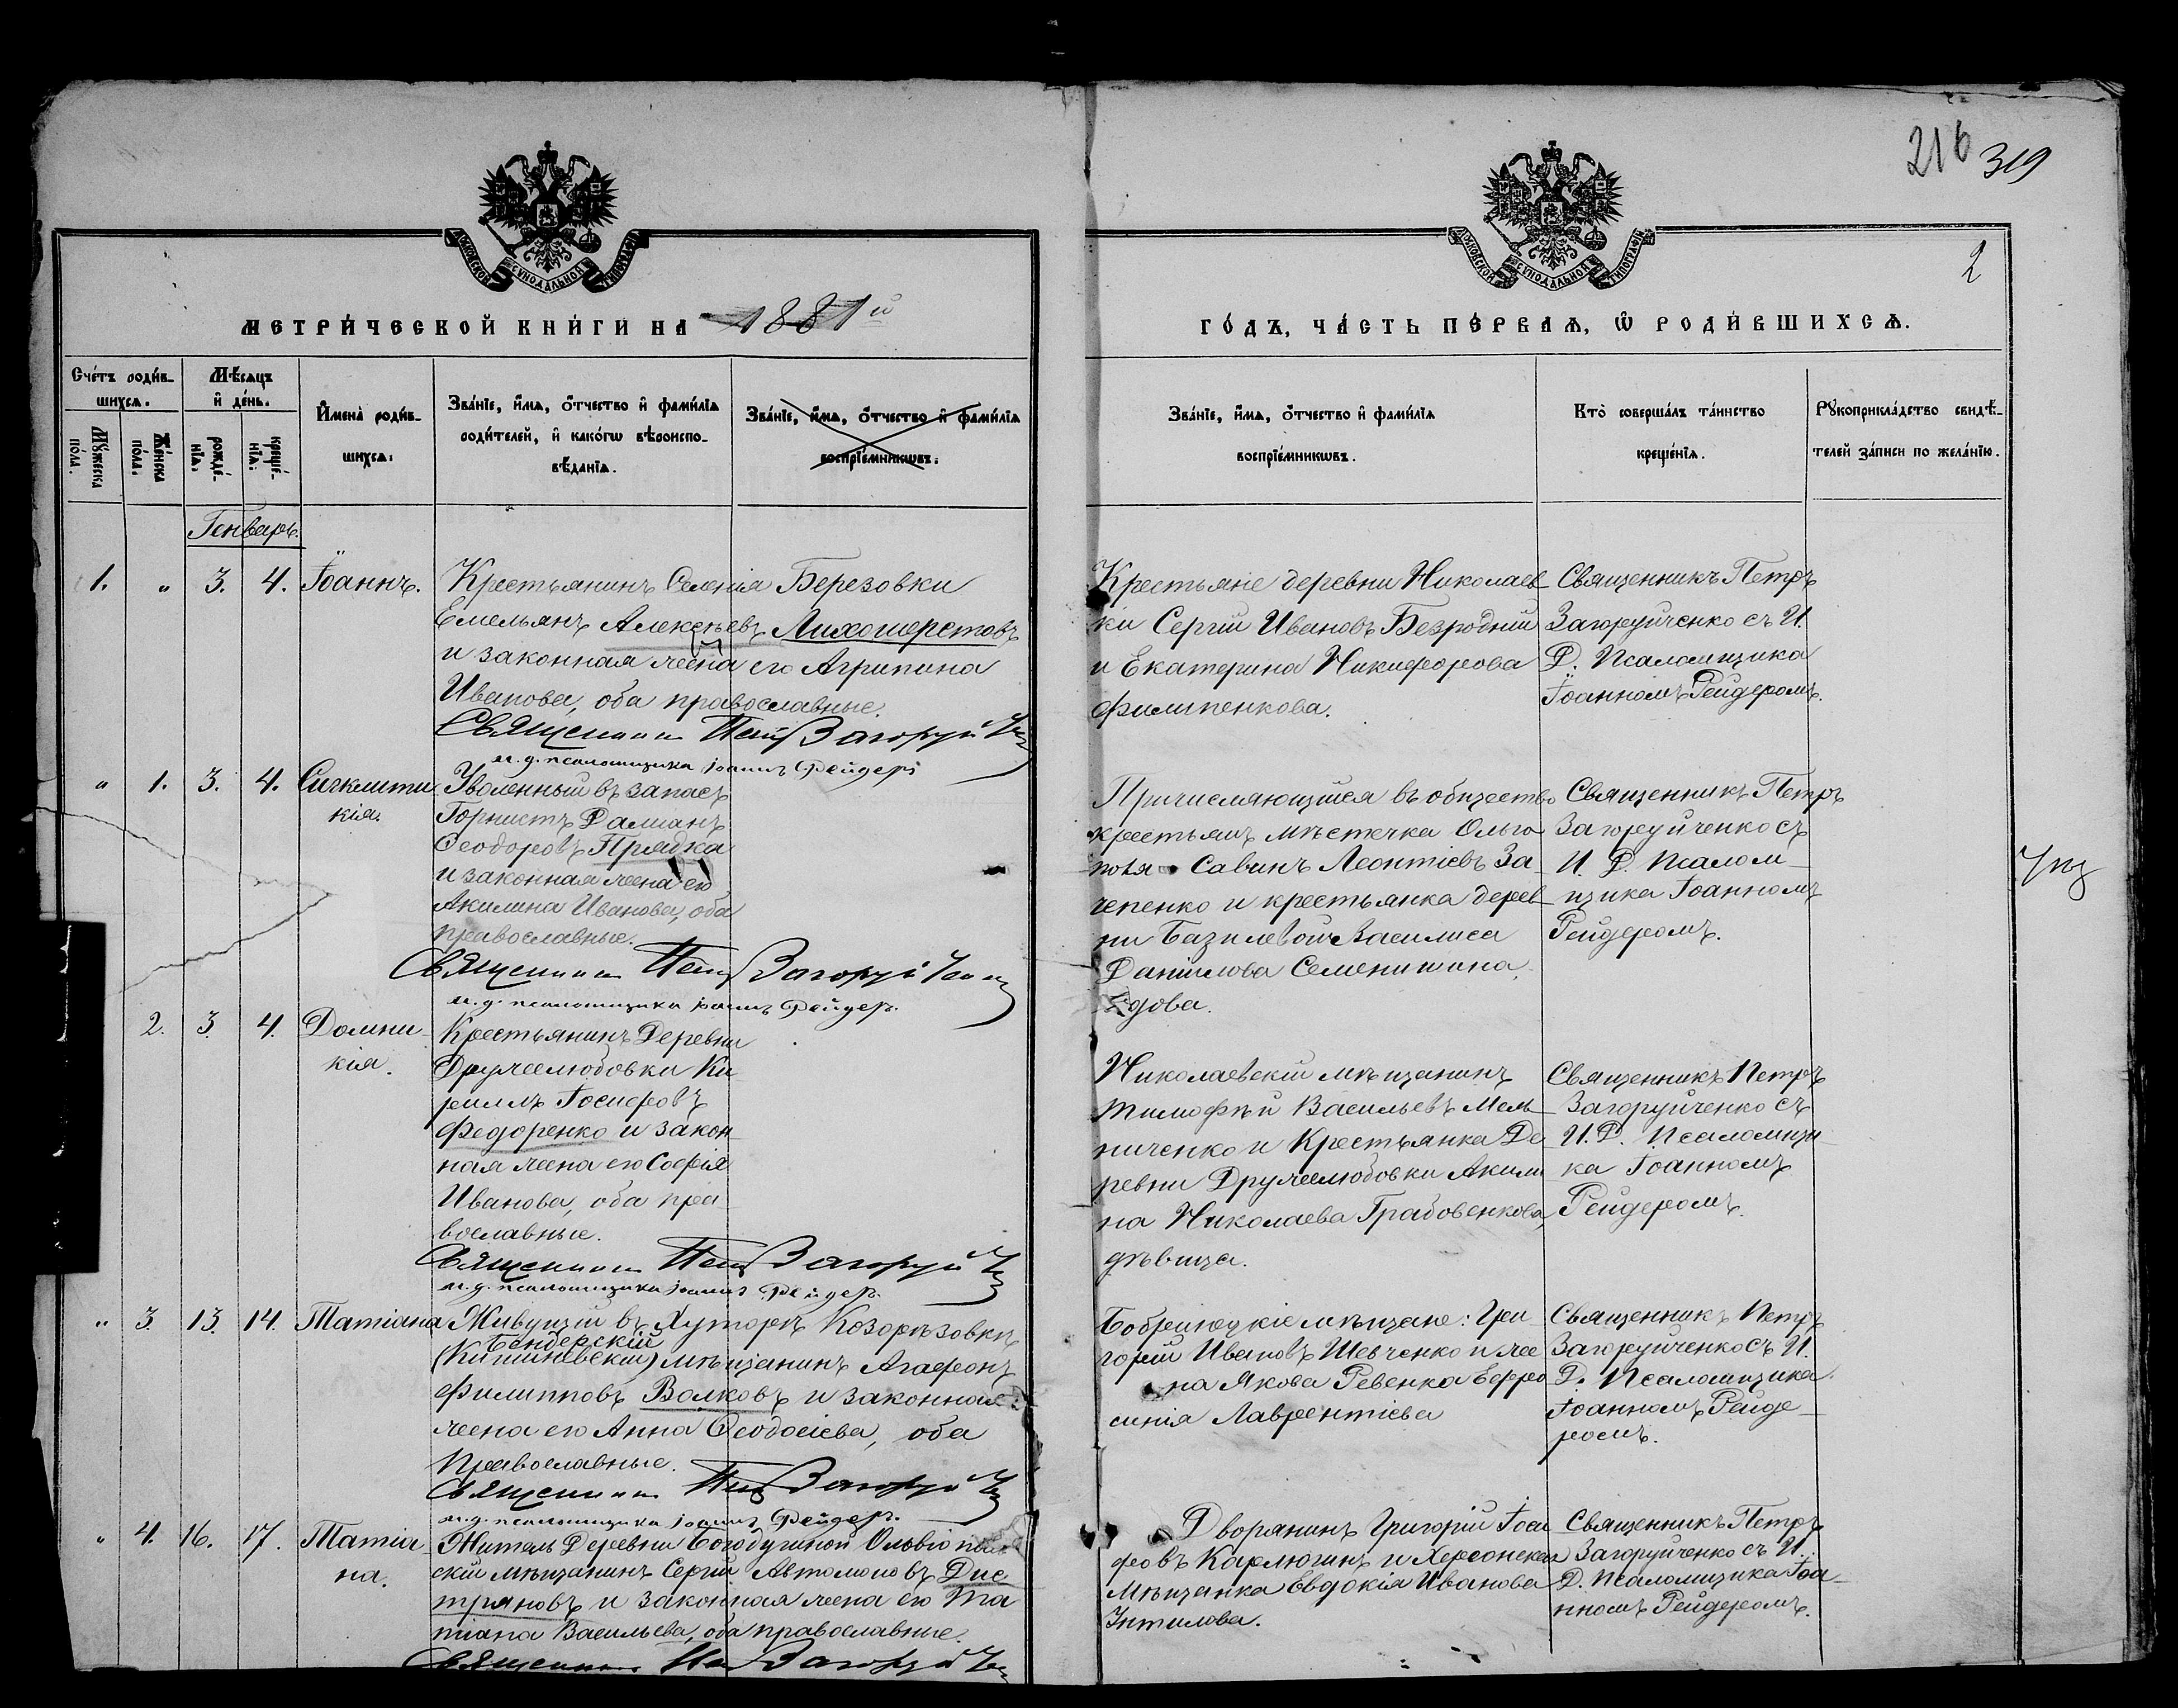 216 319
2
МОСКОВСКОЙ СѴНОДАЛЬНОЙ ТИПОГРАФІИ
МОСКОВСКОЙ СѴНОДАЛЬНОЙ ТИПОГРАФІИ
МЕТРИ́ЧЕСКОЙ КНИ́ГИ НА 1881й
ГО́ДЪ, ЧА́СТЬ ПЕ́РВАѦ, Ѽ РОДИ́ВШИХСѦ.
Сче́тъ роди́в-
шихсѧ.
Му́жеска
по́ла.
Же́нска
по́ла.
Мѣ́сѧцъ
и҆ де́нь.
рожде́-
нїѧ.
креще́-
нїѧ.
И҆мена̀ роди́в-
шихсѧ.
Зва́нїе, и҆́мѧ, о҆́тчество и҆ фами́лїѧ
роди́телей, и҆ како́гѡ вѣроиспо-
вѣ́данїѧ.
Зва́нїе, и҆́мѧ, о҆́тчество и҆ фами́лїѧ
воспрїе́мникѡвъ.
Зва́нїе, и҆́мѧ, о҆́тчество и҆ фами́лїѧ
воспрїе́мникѡвъ.
Кто̀ соверша́лъ та́инство
креще́нїѧ.
Рꙋкоприкла́дство свидѣ́-
телей за́писи по жела́нїю.
Генварь.
1. " 3. 4. Іоаннъ.
Крестьянинъ Селенія Березовки
Емельянъ Алексѣевъ Лихошерстовъ
и законная жена его Агрипина
Иванова, оба православные.
Священникъ Петръ Загоруйченко
и. д. псаломщика Іоаннъ Рейдеръ
Крестьяне деревни Николаев-
ки Сергій Ивановъ Безродній
и Екатерина Никифорова
Филипенкова.
Священникъ Петръ
Загоруйченко съ И.
Д. Псаломщика
Іоанномъ Рейдеромъ.
" 1. 3. 4. Сигклити
кія.
Уволенный въ запасъ
Горнистъ Даміанъ
Ѳеодоровъ Прядка
и законная жена его
Акилина Иванова, оба
православные.
Священникъ Петръ Загоруйченко
и. д. псаломщика Іоаннъ Рейдеръ.
Причисляющійся въ общество
крестьянъ мѣстечка Ольго-
поля Савинъ Леонтіевъ За-
чепенко и крестьянка дерев-
ни Базилевой Василиса
Даніилова Семенишина,
вдова.
Священникъ Петръ
Загоруйченко съ
И. Д. Псалом-
щика Іоанномъ
Рейдеромъ.
2. 3. 4. Домни-
кія.
Крестьянинъ Деревни
Дружелюбовки Ки
риллъ Іосифовъ
Федоренко и закон-
ная жена его Софія
Иванова, оба пра-
вославные.
Священникъ Петръ Загоруйченко
и. д. псаломщика Іоаннъ Рейдеръ.
Николаевскій мѣщанинъ
Тимофѣй Васильевъ Мель-
ниченко и Крестьянка Де
ревни Дружелюбовки Акили
на Николаева Грабовенкова,
дѣвица.
Священникъ Петръ
Загоруйченко съ
И. Д. Псаломщи-
ка Іоанномъ
Рейдеромъ.
" 3. 13. 14. Татіана
Живущій въ Хуторѣ Козорѣзовкѣ
Бендерскій
(Кишиневскій) мѣщанинъ Агафонъ
Филипповъ Волковъ и законная
жена его Анна Ѳеодосіева, оба
Православные.
Священникъ Петръ Загоруйченко
и. д. псаломщика Іоаннъ Рейдеръ.
Бобринецкіе мѣщане: Гри-
горій Ивановъ Шевченко и же
на Якова Ревенка Евфро
синія Лаврентіева
Священникъ Петръ
Загоруйченко съ И.
Д. Псаломщика
Іоанномъ Рейде-
ромъ.
" 4. 16. 17. Татіа-
на.
Житель Деревни Богодушной Ольвіополь
скій мѣщанинъ Сергій Автомоновъ Дис
тряновъ и законная жена его Та
тіана Васильева, оба православные.
Священникъ Петръ Загоруйченко
Дворянинъ Григорій Іоси-
фовъ Карлюгинъ и Херсонская
Мѣщанка Евдокія Иванова
Священникъ Петръ
Загоруйченко съ И.
Д. Псаломщика Іоа-
нномъ Рейдеромъ.